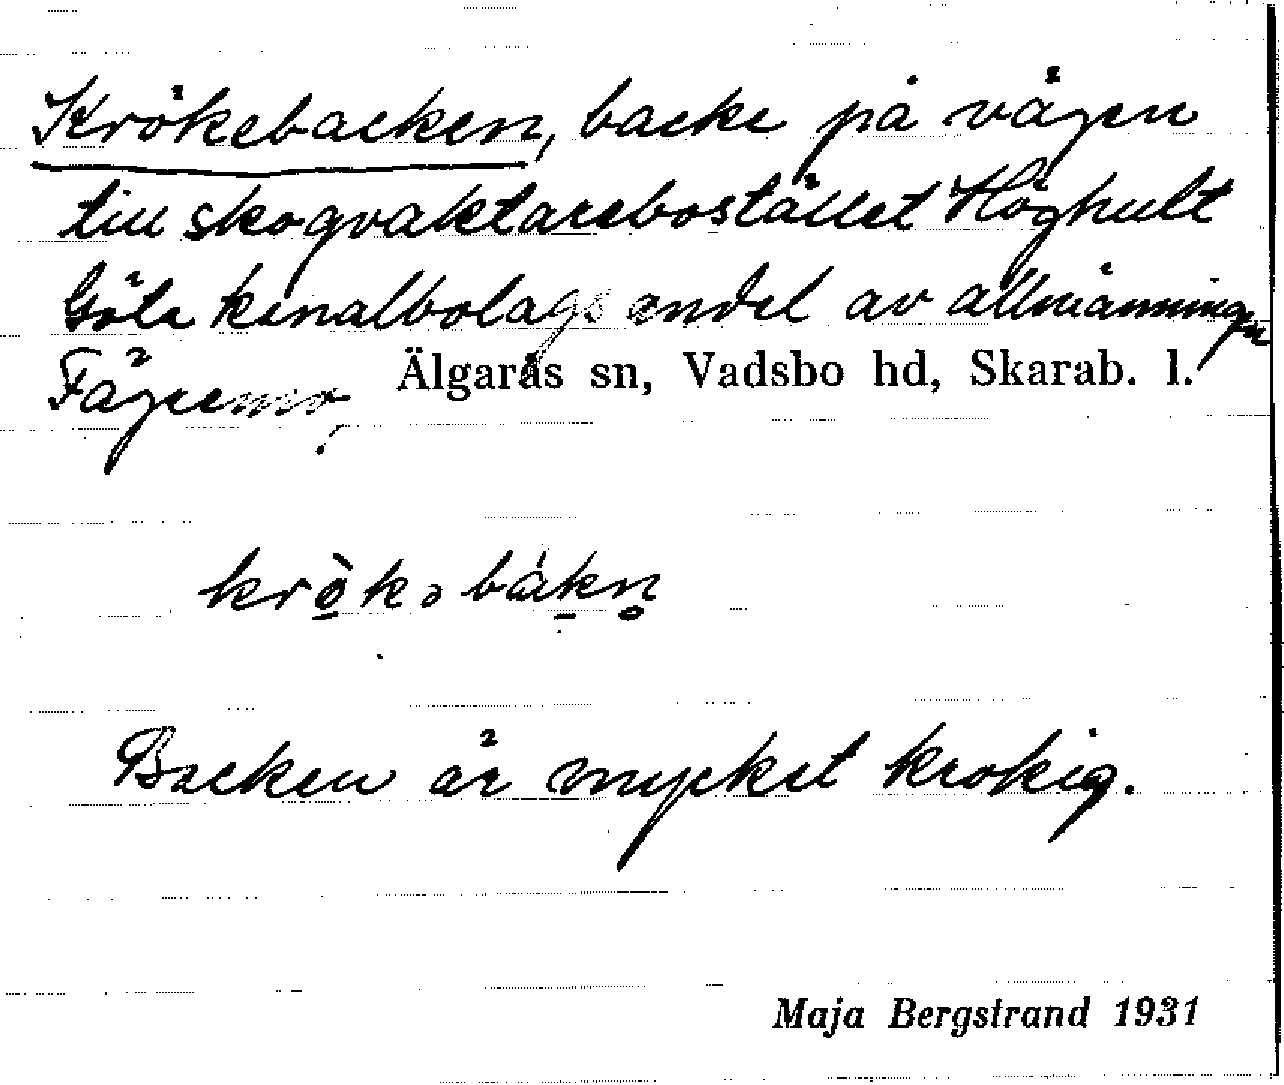 Krökebacken, backe på vägen
till skogvaktarebostället Höghult
Göta kanalbolags andel av allmänningen
Fägremo,
Älgarås sn, Vadsbo hd, Skarab. l.
krö̀kəbákn̥
Backen är mycket krokig.
Maja Bergstrand 1931